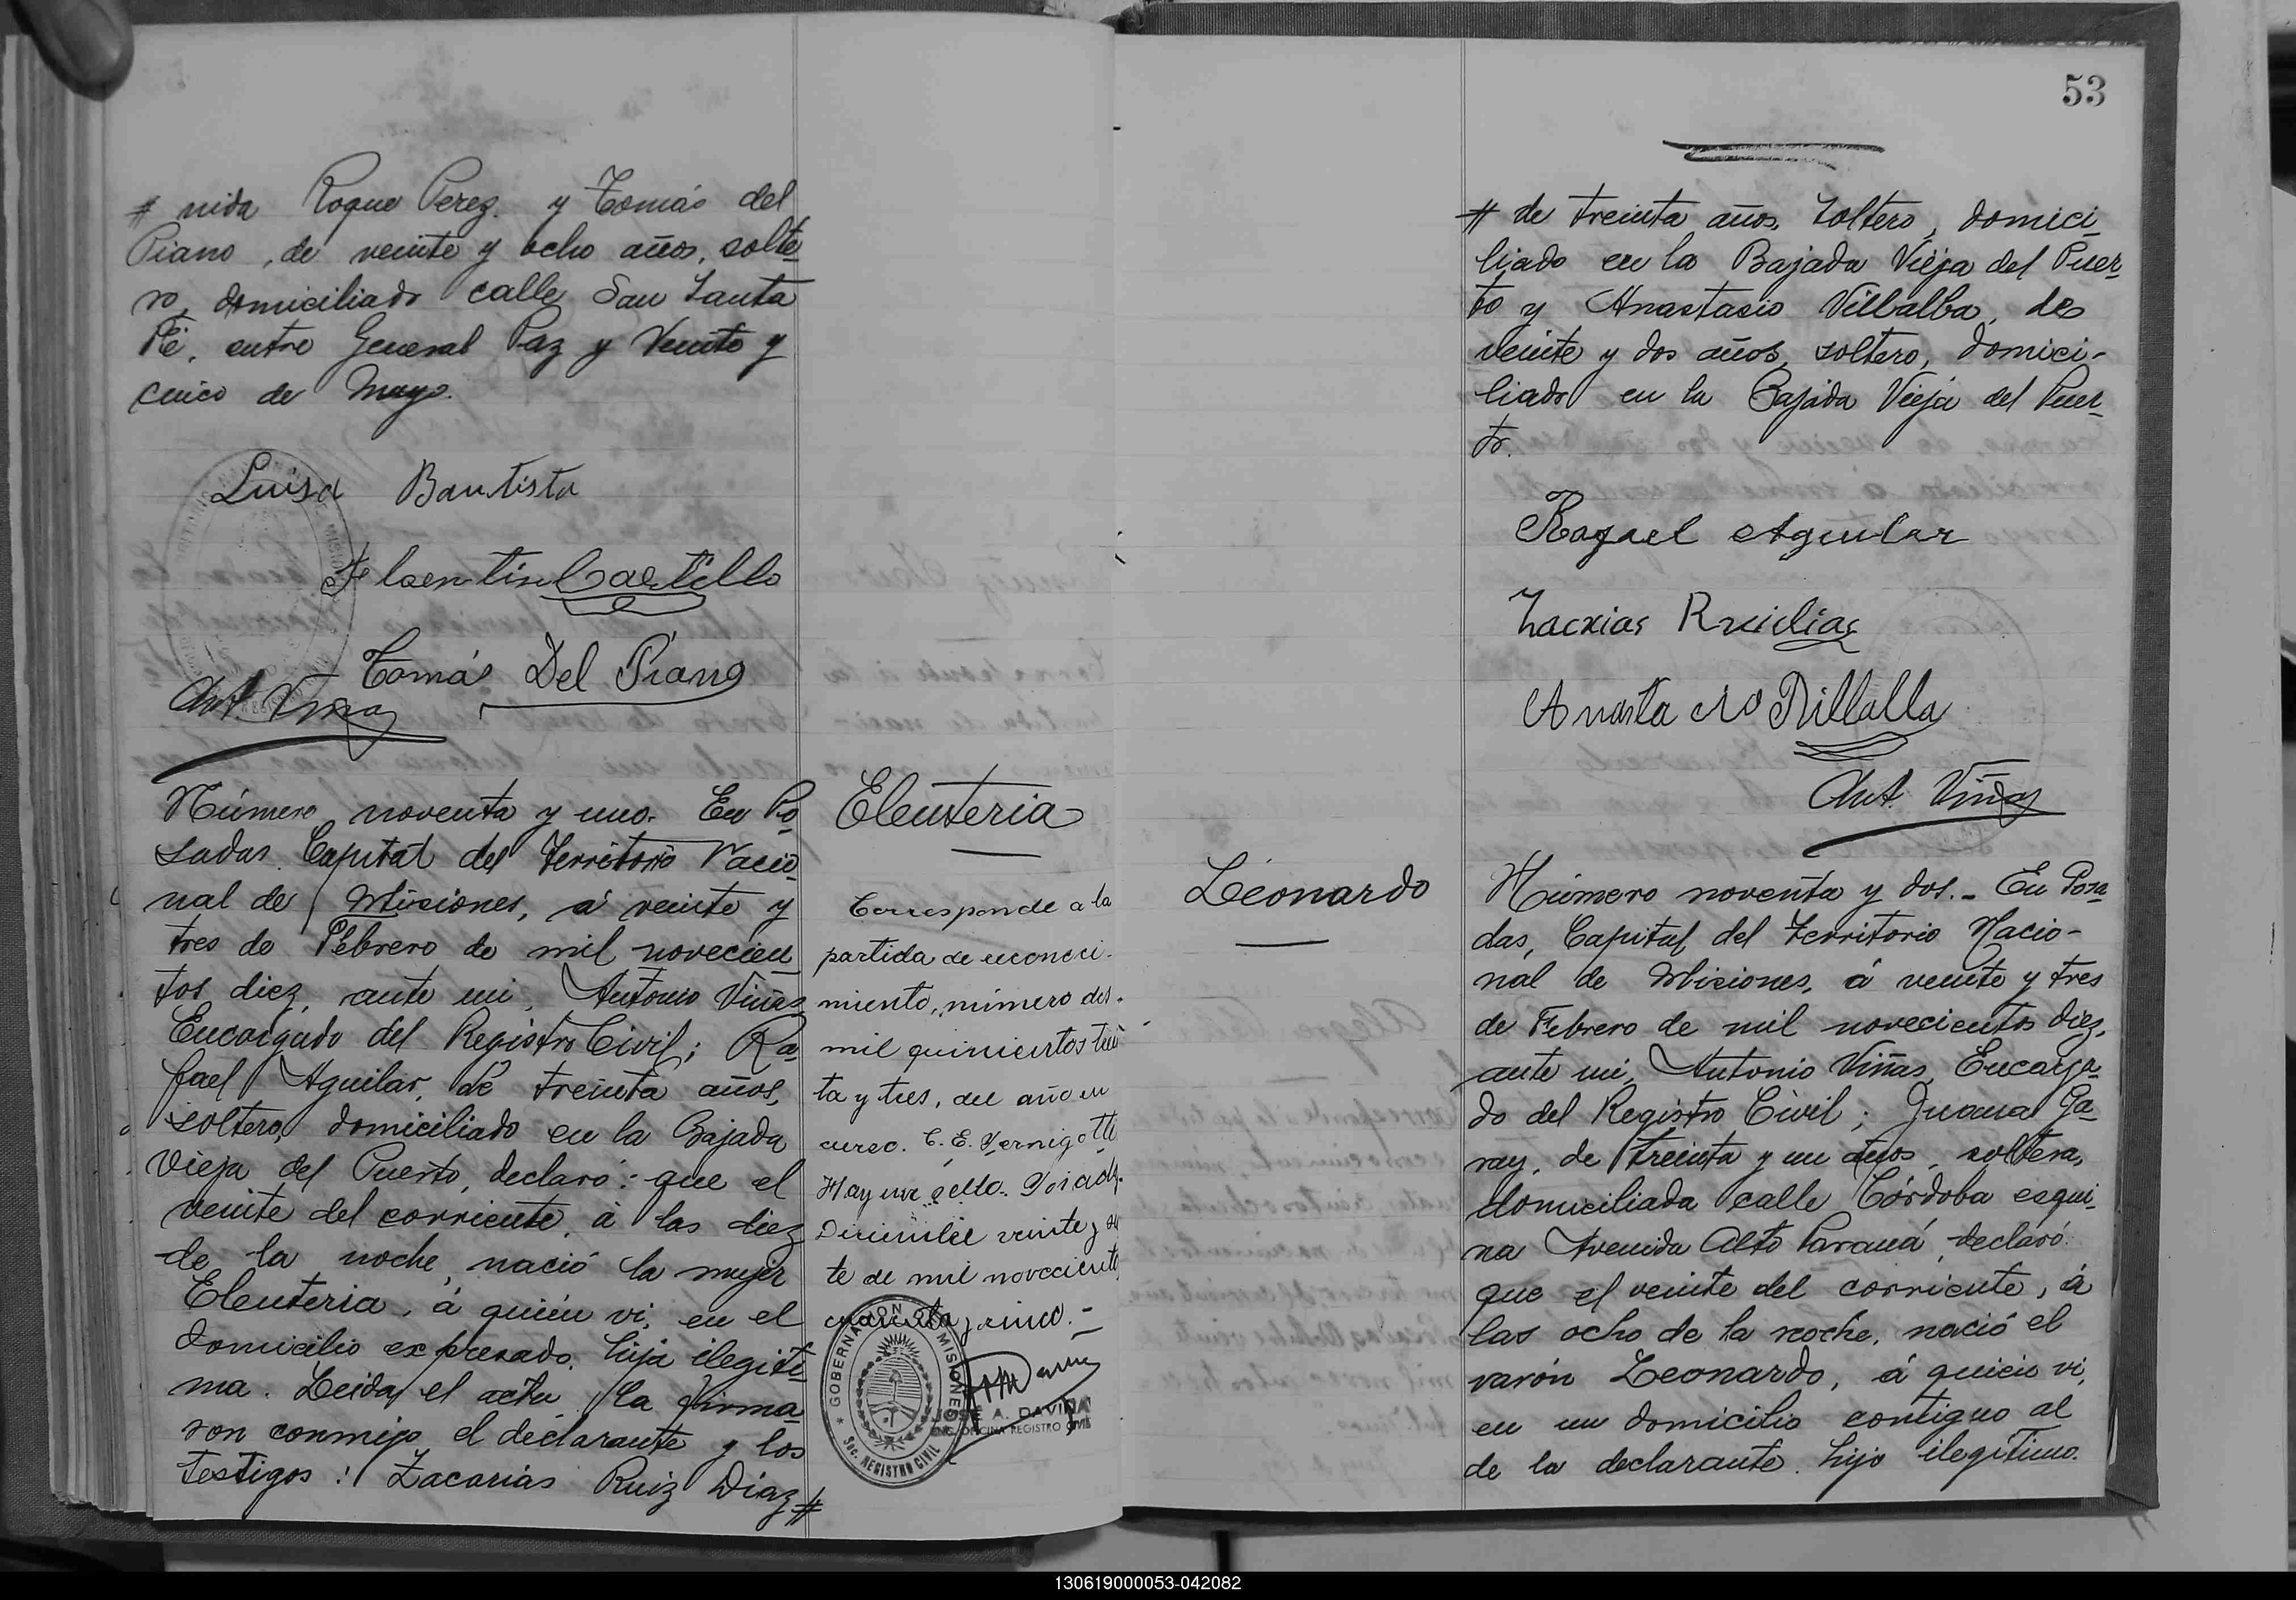 # nida Roque Perez. y Tomás del
Piano, de veinte y ocho años, solte-
ro, domiciliado calle San Santa
Fé, entre General Paz y Veinte y
cinco de Mayo.
Luisa Bautista
Florentino Castillo
Tomás Del Piano
Ant. Viñas
Número noventa y uno. En Po-
sadas Capital del Territorio Nacio-
nal de Misiones, á veinte y
tres de Febrero de mil novecien-
tos diez, ante mi, Antonio Viñas
Encargado del Registro Civil; Ra-
fael Aguilar, de treinta años,
soltero, domiciliado en la Bajada
Vieja del Puerto, declaró: que el
veinte del corriente, á las diez
de la noche, nació la mujer
Eleuteria, á quién vi, en el
domicilio expresado, hija ilegíti-
ma. Leida el acta, la firma-
ron conmigo el declarante y los
testigos: Zacarias Ruiz Diaz #
Eleuteria
Corresponde a la
partida de reconoci-
miento, número dos-
mil quinientos trein
ta y tres, del año en
curso. C. E. Vernigotti
Hay un sello. Posadas.
Diciembre veinte y sie
te de mil novecientos
cuarenta y cinco.-
GOBERNACION MISIONES
SEC. REGISTRO CIVIL
JOSÉ A. DAVIÑA
ENC. OFICINA REGISTRO CIVIL
53
# de treinta años, soltero, domici-
liado en la Bajada Vieja del Puer-
to y Anastasio Villalba, de
veinte y dos años, soltero, domici-
liado en la Bajada Vieja del Puer-
to.
Rafael Aguilar
Zacrias Ruidias
Anastacio Villalla
Ant. Viñas
Leonardo
Número noventa y dos.- En Posa-
das, Capital del Territorio Nacio-
nal de Misiones, á veinte y tres
de Febrero de mil novecientos diez,
ante mi, Antonio Viñas, Encarga-
do del Registro Civil; Juana Ga-
ray, de treinta y un años, soltera,
domiciliada calle Córdoba esqui-
na Avenida Alto Paraná, declaró:
que el veinte del corriente, á
las ocho de la noche, nació el
varón Leonardo, á quién vi,
en un domicilio contiguo al
de la declarante. hijo ilegítimo.
130619000053-042082